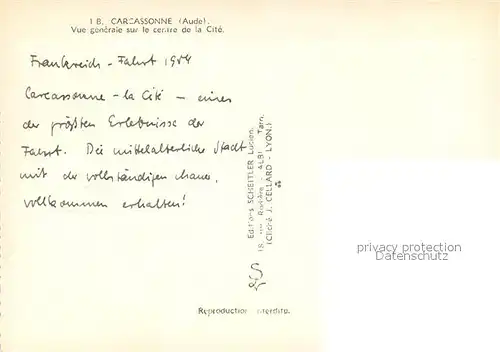 18. CARCASSONNE (Aude).
Vue générale sur le centre de la Cité.
Frankreich - Fahrt 1954
Carcassonne - la Cité - eines
der größten Erlebnisse der
Fahrt. Die mittelalterliche Stadt
mit der vollständigen Mauer,
vollkommen erhalten!
Editions SCHEITLER Lucien,
18, rue Rosière - ALBI - Tarn.
(Cliché J. CELLARD - LYON.)
Reproduction interdite.
privacy protection
AnsichtskartenVersand.com